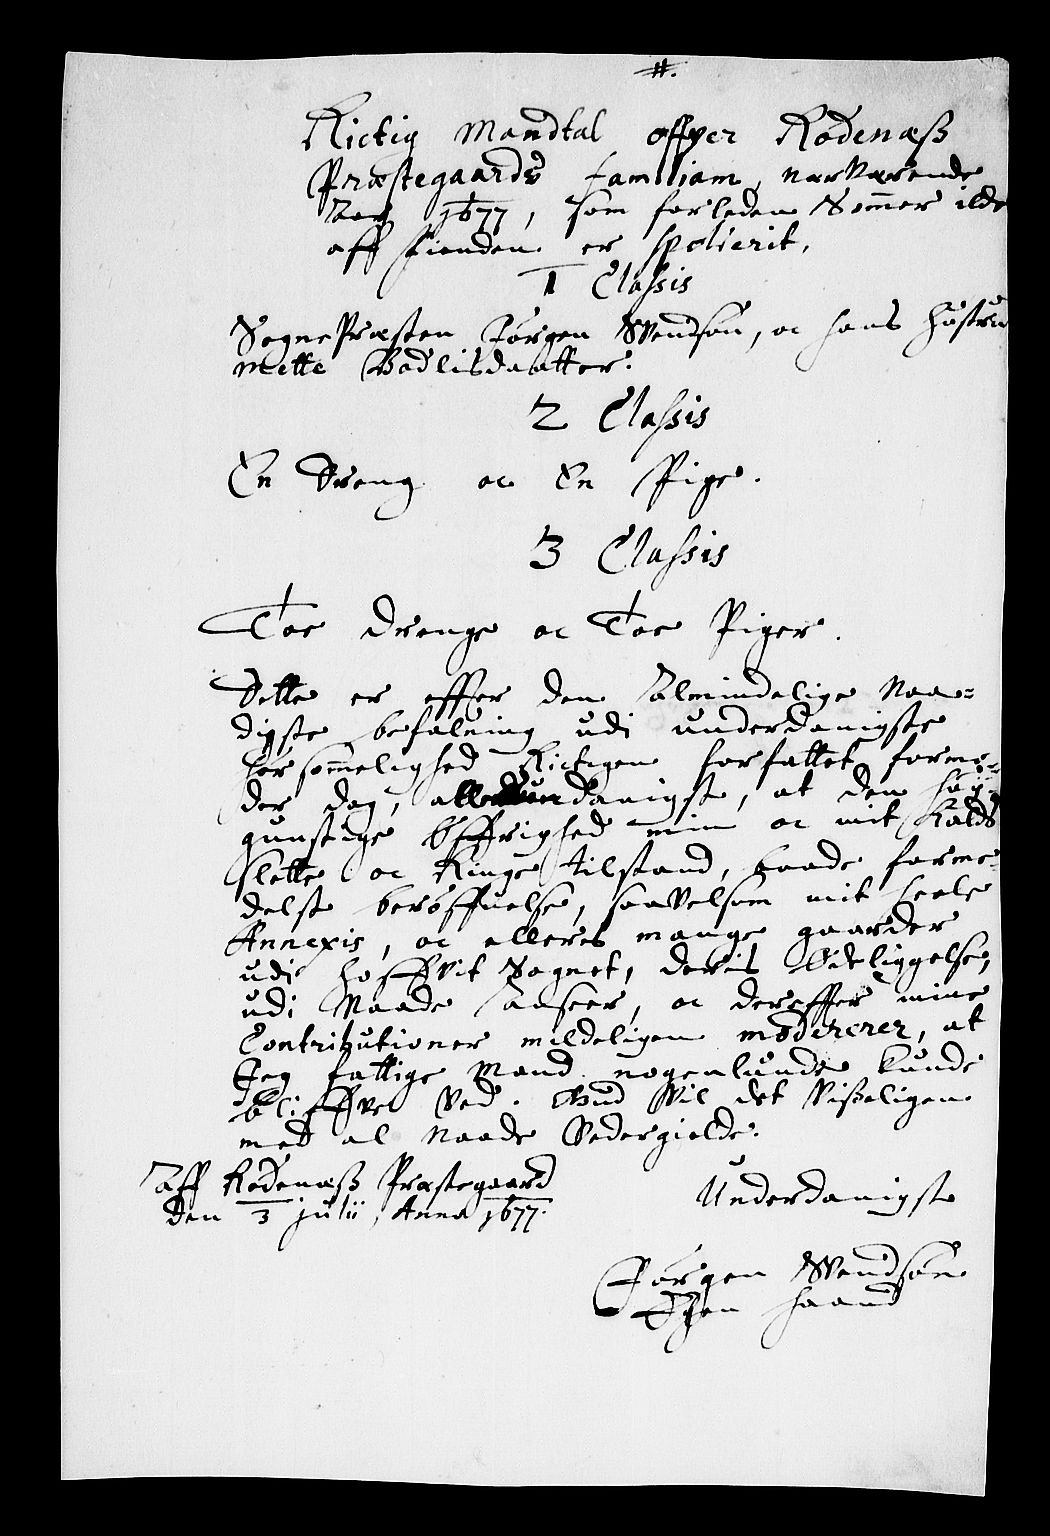 #.
Rictig Mandtal offver Rødenæß
Præstegaards familiam, nærværende
Aar 1677, som forleden Sommer ilde
aff fienden er spolierit.
1 Classis
SognePræsten Jørgen Svendsøn, oc hans høstru
Mette Bodlisdaatter.
2 Classis
En Dreng oc En Pige.
3 Classis
Toe drenge oc Toe Piger.
Dette er effter den Allmindelige Naa-
digste befalning udi underdanigste
hørsommelighed Rictigen forfattet forme-
der dog, allerunderdanigst, at den høy-
gunstige Øffrighed min oc mit Kalds
slette oc Ringe tilstand, baade forme-
delst berøffuelse, saavelsom mit heele
Annexis, oc ellers mange gaarder
udi hoffvit Sognet, deris Ødeliggelse,
udi Naade Anseer, oc dereffter mine
Contributioner mildeligen modererer, at
Jeg fattige Mand nogenlunde kunde
bliffve ved. Gud vil det visseligen
med al Naade Vedergielde.
Aff Rødenæß Præstegaard
den 3 julii, Anno 1677.
Underdanigst
Jørgen Svendsøn
Egen haand